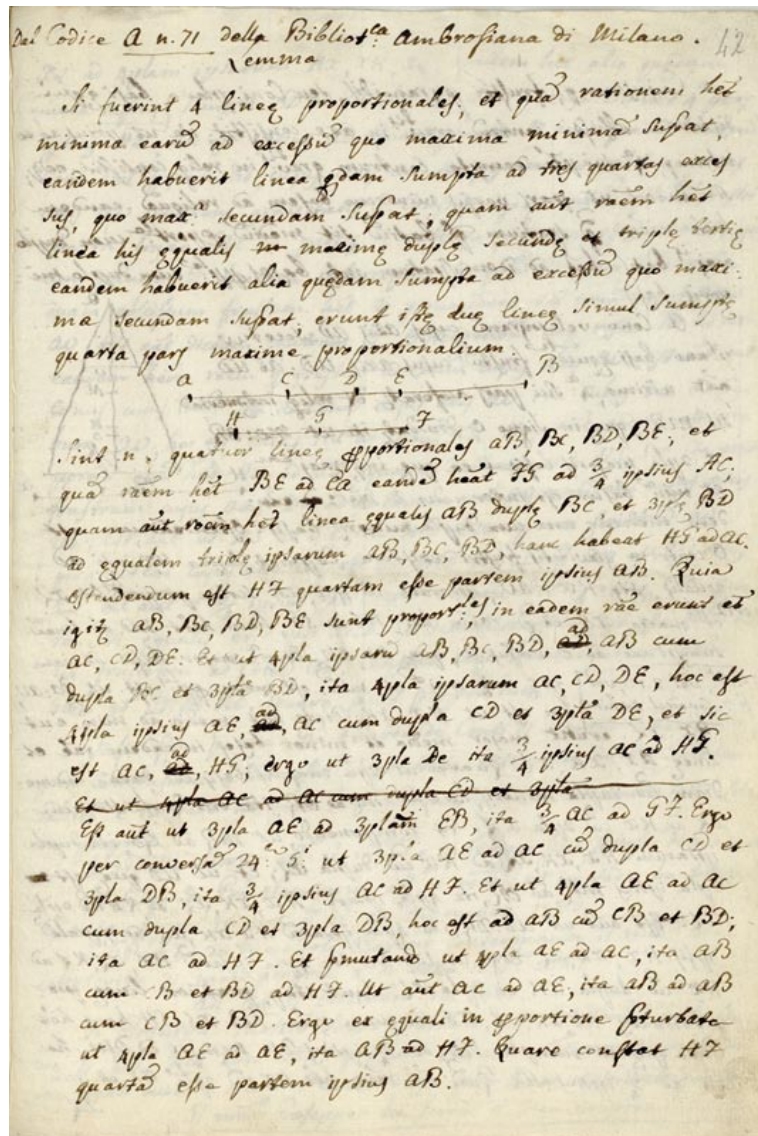 Dal Codice A n. 71 della Bibliotca Ambrosiana di Milano. 42
Lemma
Si fuerint 4 lineę proportionales, et quã rationem het
minima earũ ad excessũ quo maxima minimã supat,
eandem habuerit linea quędam sumpta ad tres quartas exces
sus, quo maxa secundam supat, quam aũt rõem hẽt
linea his ęqualis maximę duplę secundę et triplę tertię
eandem habuerit alia quędam sumpta ad excessũ quo maxi:
ma secundam supat, erunt istę duę lineę simul sumptę
quarta pars maxime proportionalium.
A C D E B
H G F
Sint n. quatuor lineę pportionales AB, BC, BD, BE; et
quã rõem hẽt BE ad EA eandẽ heat FG ad 3/4 ipsius AC;
quam aũt rõem hẽt linea ęqualis AB duplę BC, et 3plę BD
ad ęqualem triplę ipsarum AB, BC, BD, hanc habeat HG ad AC.
Ostendendum est HF quartam esse partem ipsius AB. Quia
igitę AB, BC, BD, BE sunt proportles, in eadem rõe erunt et
AC, CD, DE. Et ut 4pla ipsarũ AB, BC, BD, ad AB cum
dupla BC et 3pla BD, ita 4pla ipsarum AC, CD, DE, hoc est
4pla ipsius AE, ad AC cum dupla CD et 3pla DE, et sic
est AC, ad HG; ergo ut 3pla De ita 3/4 ipsius AC ad HG.
Et ut 4pla AC ad AC cum dupla CD et 3pla
Est aũt ut 3pla AE ad 3plam EB, ita 3/4 AC ad GF. Ergo
per conversã 24 5i ut 3pla AE ad AC cũ dupla CD et
3pla DB, ita 3/4 ipsius AC ad HF. Et ut 4pla AE ad AC
cum dupla CD et 3pla DB, hoc est ad AB cũ CB et BD;
ita AC ad HF. Et pmutando ut 4pla AE ad AC, ita AB
cum CB et BD ad HF. Ut aũt AC ad AE, ita AB ad AB
cum CB et BD. Ergo ex ęquali in pportione pturbata
ut 4pla AE ad AE, ita AB ad HF. Quare constat HF
quartã esse partem ipsius AB.